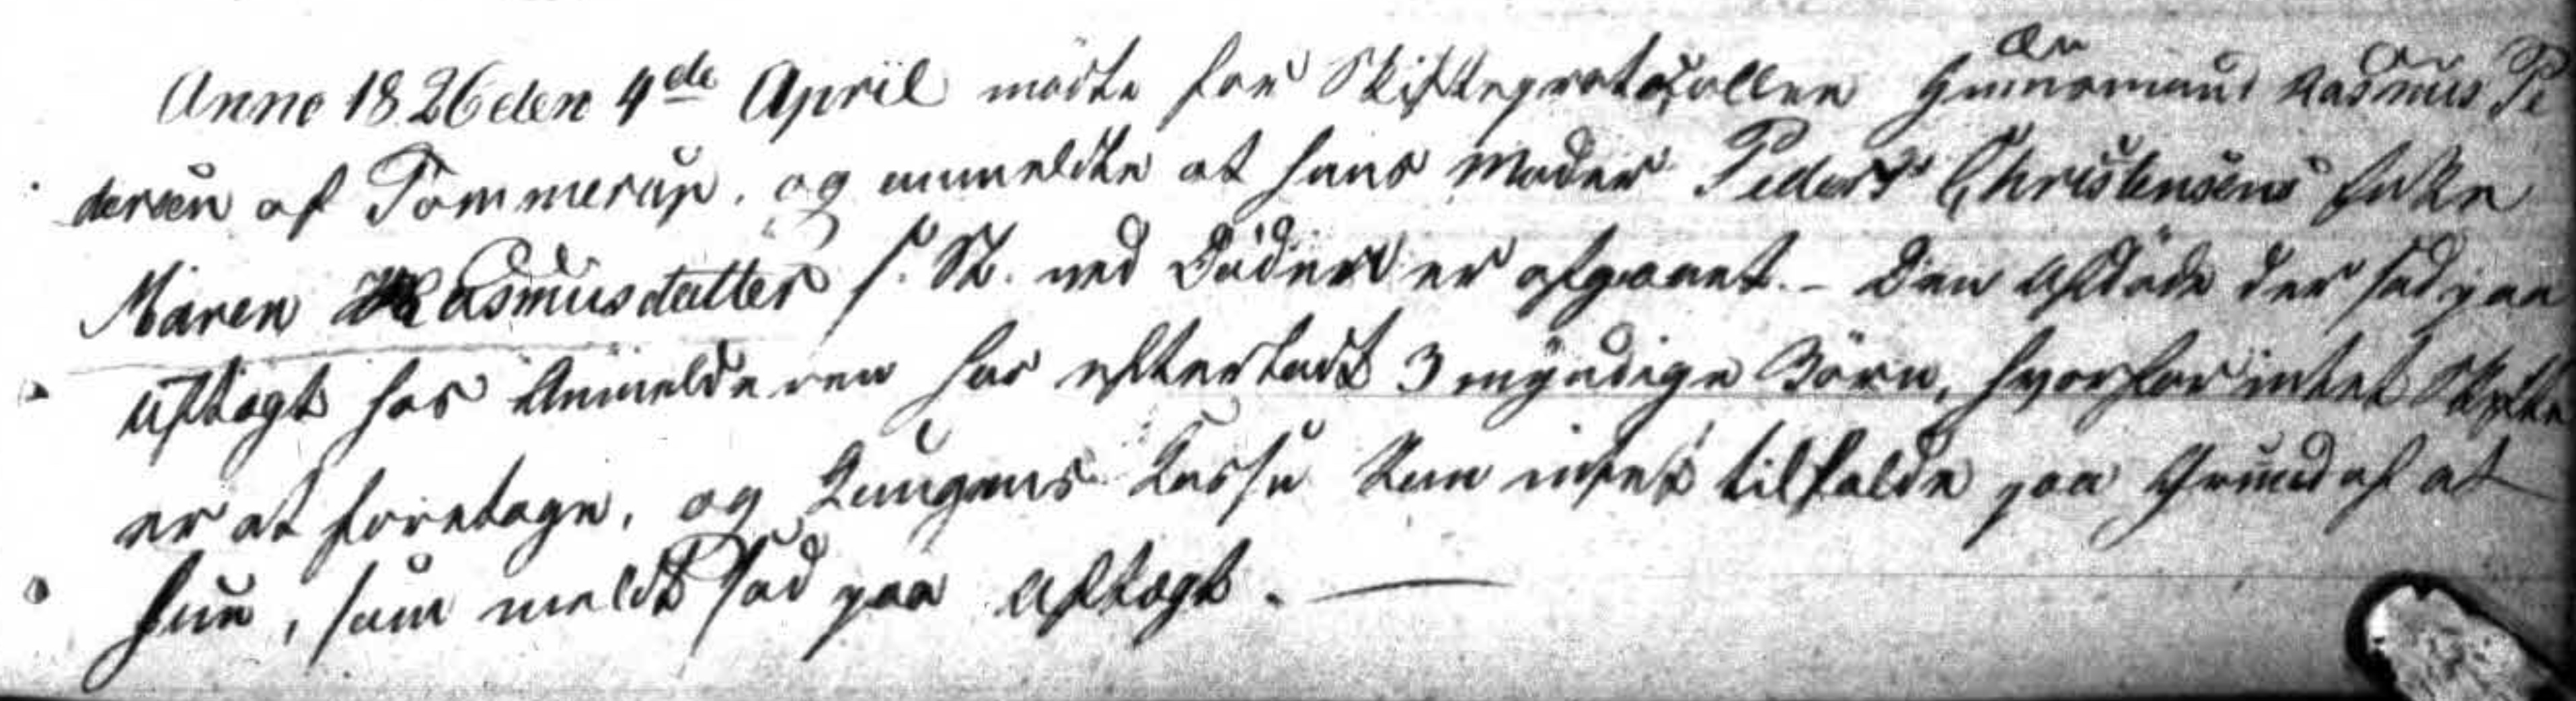 Anno 1826 den 4de April mödte for Skifteprotocollen Huusmand Rasmus Pe
dersen af Tommerup, og anmeldte at hans Moder Peder Christensens Enke
Maren Rasmusdatter s. St. ved Döden er afgaaet. - Den Afdöde der sad paa
Aftægt hos Anmelderen har efterladt 3 myndige Börn, hvorfor intet Skifte
er at foretage, og Kassu kan intet tilfalde paa Grund af at
hun, som meldt sad paa Aftægt. —